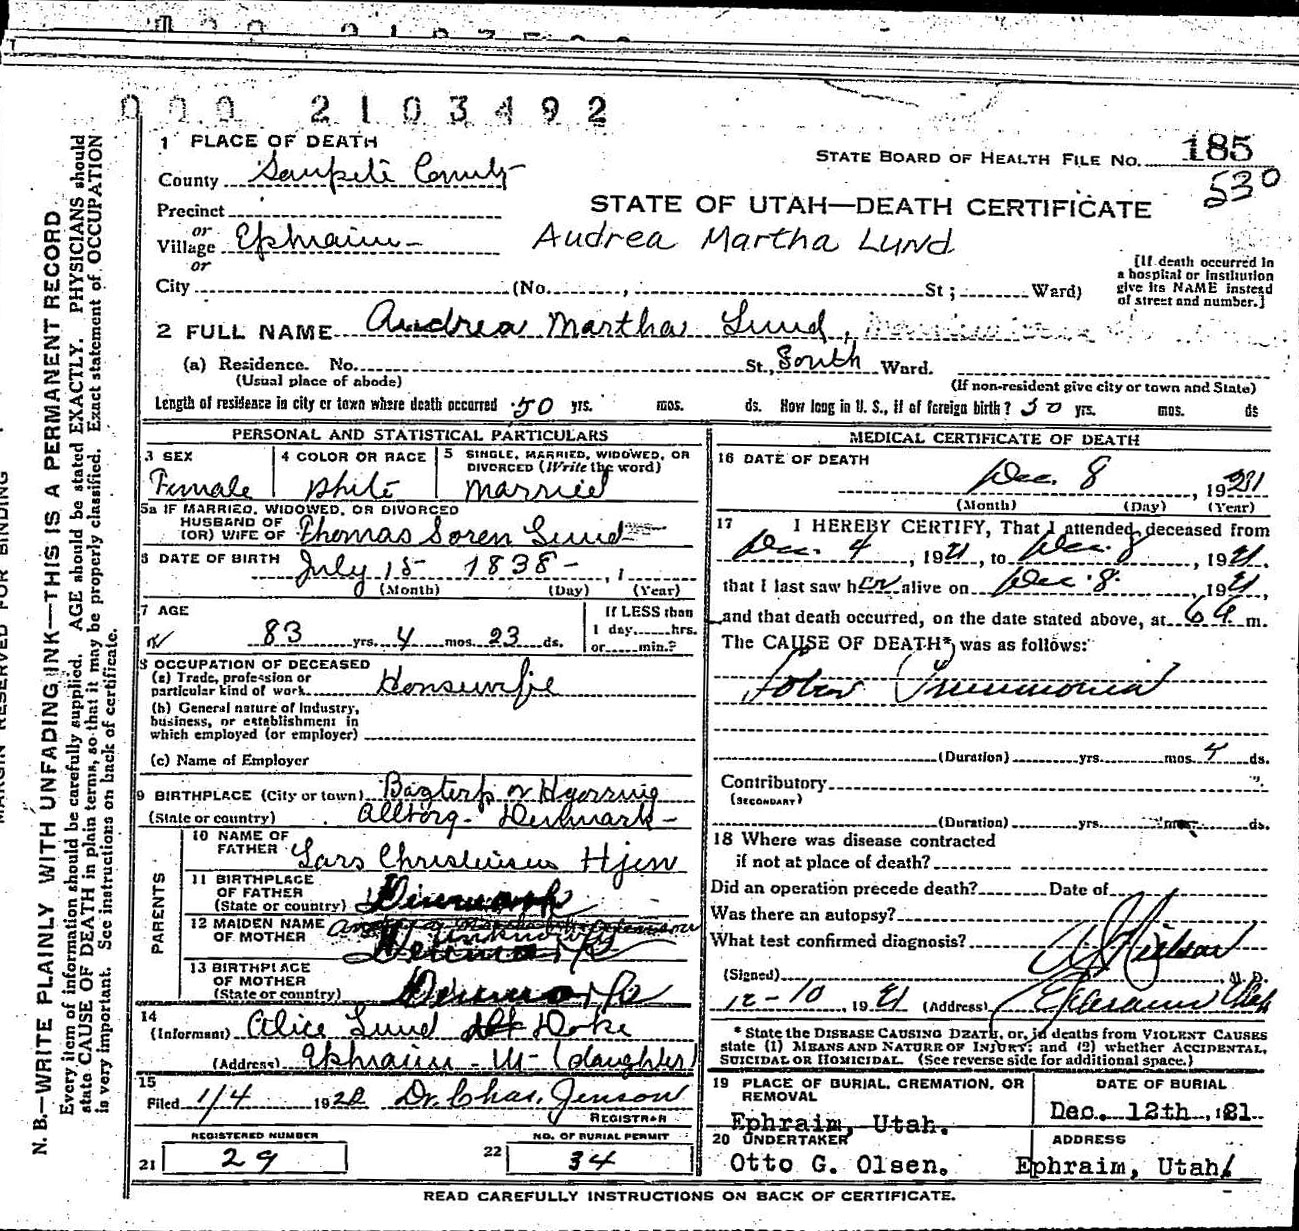 000 2103492
1 PLACE OF DEATH
STATE BOARD OF HEALTH FILE NO. 185
530
County Sanpete County
STATE OF UTAH—DEATH CERTIFICATE
Precinct
or
Village Ephraim
Audrea Martha Lund
or
City (No. , St ; Ward)
[If death occurred in
a hospital or institution
give its NAME instead
of street and number.]
2 FULL NAME Audrea Martha Lund,
(a) Residence. No. St., South Ward.
(Usual place of abode)
(If non-resident give city or town and State)
Length of residence in city or town where death occurred 50 yrs. mos. ds. How long in U. S., if of foreign birth? 50 yrs. mos. ds
PERSONAL AND STATISTICAL PARTICULARS
3 SEX
Female
4 COLOR OR RACE
White
5 SINGLE, MARRIED, WIDOWED, OR
DIVORCED (Write the word)
Married
5a IF MARRIED, WIDOWED, OR DIVORCED
HUSBAND OF
(OR) WIFE OF Thomas Soren Lund
6 DATE OF BIRTH July 15 1838 , 1
(Month) (Day) (Year)
7 AGE
83 yrs. 4 mos. 23 ds.
If LESS than
1 day, hrs.
or min.?
8 OCCUPATION OF DECEASED
(a) Trade, profession or
particular kind of work Housewife
(b) General nature of industry,
business, or establishment in
which employed (or employer)
(c) Name of Employer
9 BIRTHPLACE (City or town) Bagterp or Hyorring
(State or country) Allborg - Denmark -
PARENTS
10 NAME OF
FATHER Lars Christensen Hjen
11 BIRTHPLACE
OF FATHER
(State or country) Denmark
12 MAIDEN NAME
OF MOTHER
13 BIRTHPLACE
OF MOTHER
(State or country) Denmark
14
(Informant) Alice Lund
(Address) Ephraim - Ut - (daughter)
15
Filed 1/4 1922 Dr. Chas. Jenson
REGISTRAR
REGISTERED NUMBER
21 29
NO. OF BURIAL PERMIT
22 34
MEDICAL CERTIFICATE OF DEATH
16 DATE OF DEATH
Dec. 8 , 1921
(Month) (Day) (Year)
17 I HEREBY CERTIFY, That I attended deceased from
Dec. 4 , 1921, to Dec. 8 , 1921.
that I last saw her alive on Dec. 8. 1921,
and that death occurred, on the date stated above, at 6 A m.
The CAUSE OF DEATH* was as follows:
Lobar Pneumonia
(Duration) yrs. mos. 4 ds.
Contributory
(SECONDARY)
(Duration) yrs. mos. ds.
18 Where was disease contracted
if not at place of death?
Did an operation precede death? Date of
Was there an autopsy?
What test confirmed diagnosis?
(Signed) Nielson M. D.
12-10, 1921 (Address) Ephraim Utah
* State the DISEASE CAUSING DEATH, or, in deaths from VIOLENT CAUSES
state (1) MEANS AND NATURE OF INJURY: and (2) whether ACCIDENTAL,
SUICIDAL OR HOMICIDAL. (See reverse side for additional space.)
19 PLACE OF BURIAL, CREMATION, OR
REMOVAL
Ephraim, Utah.
DATE OF BURIAL
Dec. 12th, 121
20 UNDERTAKER
Otto G. Olsen.
ADDRESS
Ephraim, Utah
READ CAREFULLY INSTRUCTIONS ON BACK OF CERTIFICATE.
MARGIN RESERVED FOR BINDING
N. B.—WRITE PLAINLY WITH UNFADING INK—THIS IS A PERMANENT RECORD
Every item of information should be carefully supplied. AGE should be stated EXACTLY. PHYSICIANS should
state CAUSE OF DEATH in plain terms, so that it may be properly classified. Exact statement of OCCUPATION
is very important. See instructions on back of certificate.